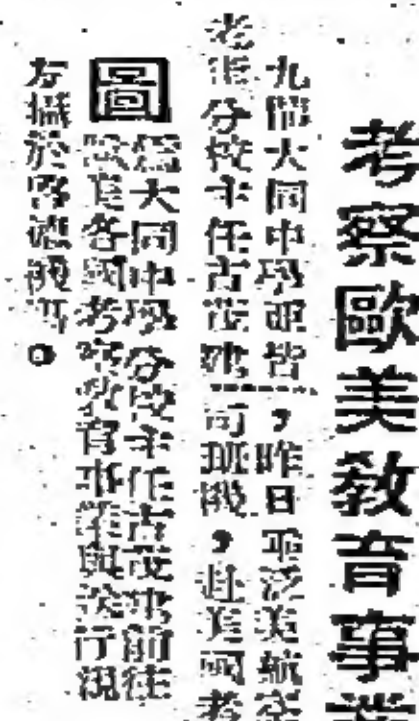 考察歐美教育事業
九龍大同中學　　，昨日乘泛美航空
　　分校主任古茂建　司班機，赴美國考
圖
為大同中學分校主任古茂建前往
歐美各國考察教育事業與送行親
友攝於啓德機場。